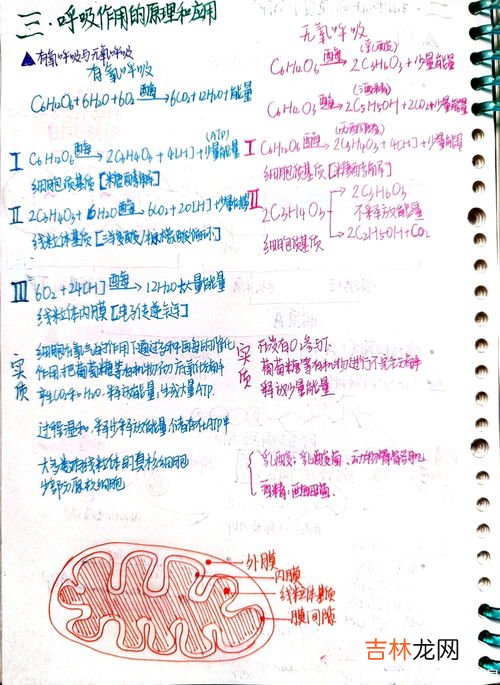 三.呼吸作用的原理和应用
▲有氧呼吸与无氧呼吸
有氧呼吸
C6H12O6+6H2O+6O2 酶→ 6CO2+12H2O+能量
I C6H12O6 酶→ 2C3H4O3+4[H]+少量能量
(ATP)
细胞质基质[糖酵解]
II 2C3H4O3+6H2O 酶→ 6CO2+20[H]+少量能量
线粒体基质
III 6O2+24[H] 酶→ 12H2O+大量能量
线粒体内膜[电子传递链]
实质
细胞在氧气参与作用下通过多种酶的催化
作用,把葡萄糖等有机物彻底氧化分解
产生CO2和H2O,释放能量,生成大量ATP.
过程温和,逐步释放能量,储存在ATP中
大多数有线粒体的真核细胞
少部分原核细胞
无氧呼吸
(乳酸)
C6H12O6 酶→ 2C3H6O3+少量能量
(酒精)
酶→ 2C2H5OH+2CO2+少量能量
I C6H12O6 酶→ 2C3H4O3+4[H]+少量能量
细胞质基质
II 2C3H4O3
→2C3H6O3
不释放能量
→2C2H5OH+CO2
细胞质基质
实质
葡萄糖等有机物进行不完全分解
释放少量能量
乳酸:乳酸菌、动物骨骼肌
酒精:酵母菌、
外膜
内膜
线粒体基质
膜间隙
吉林龙网